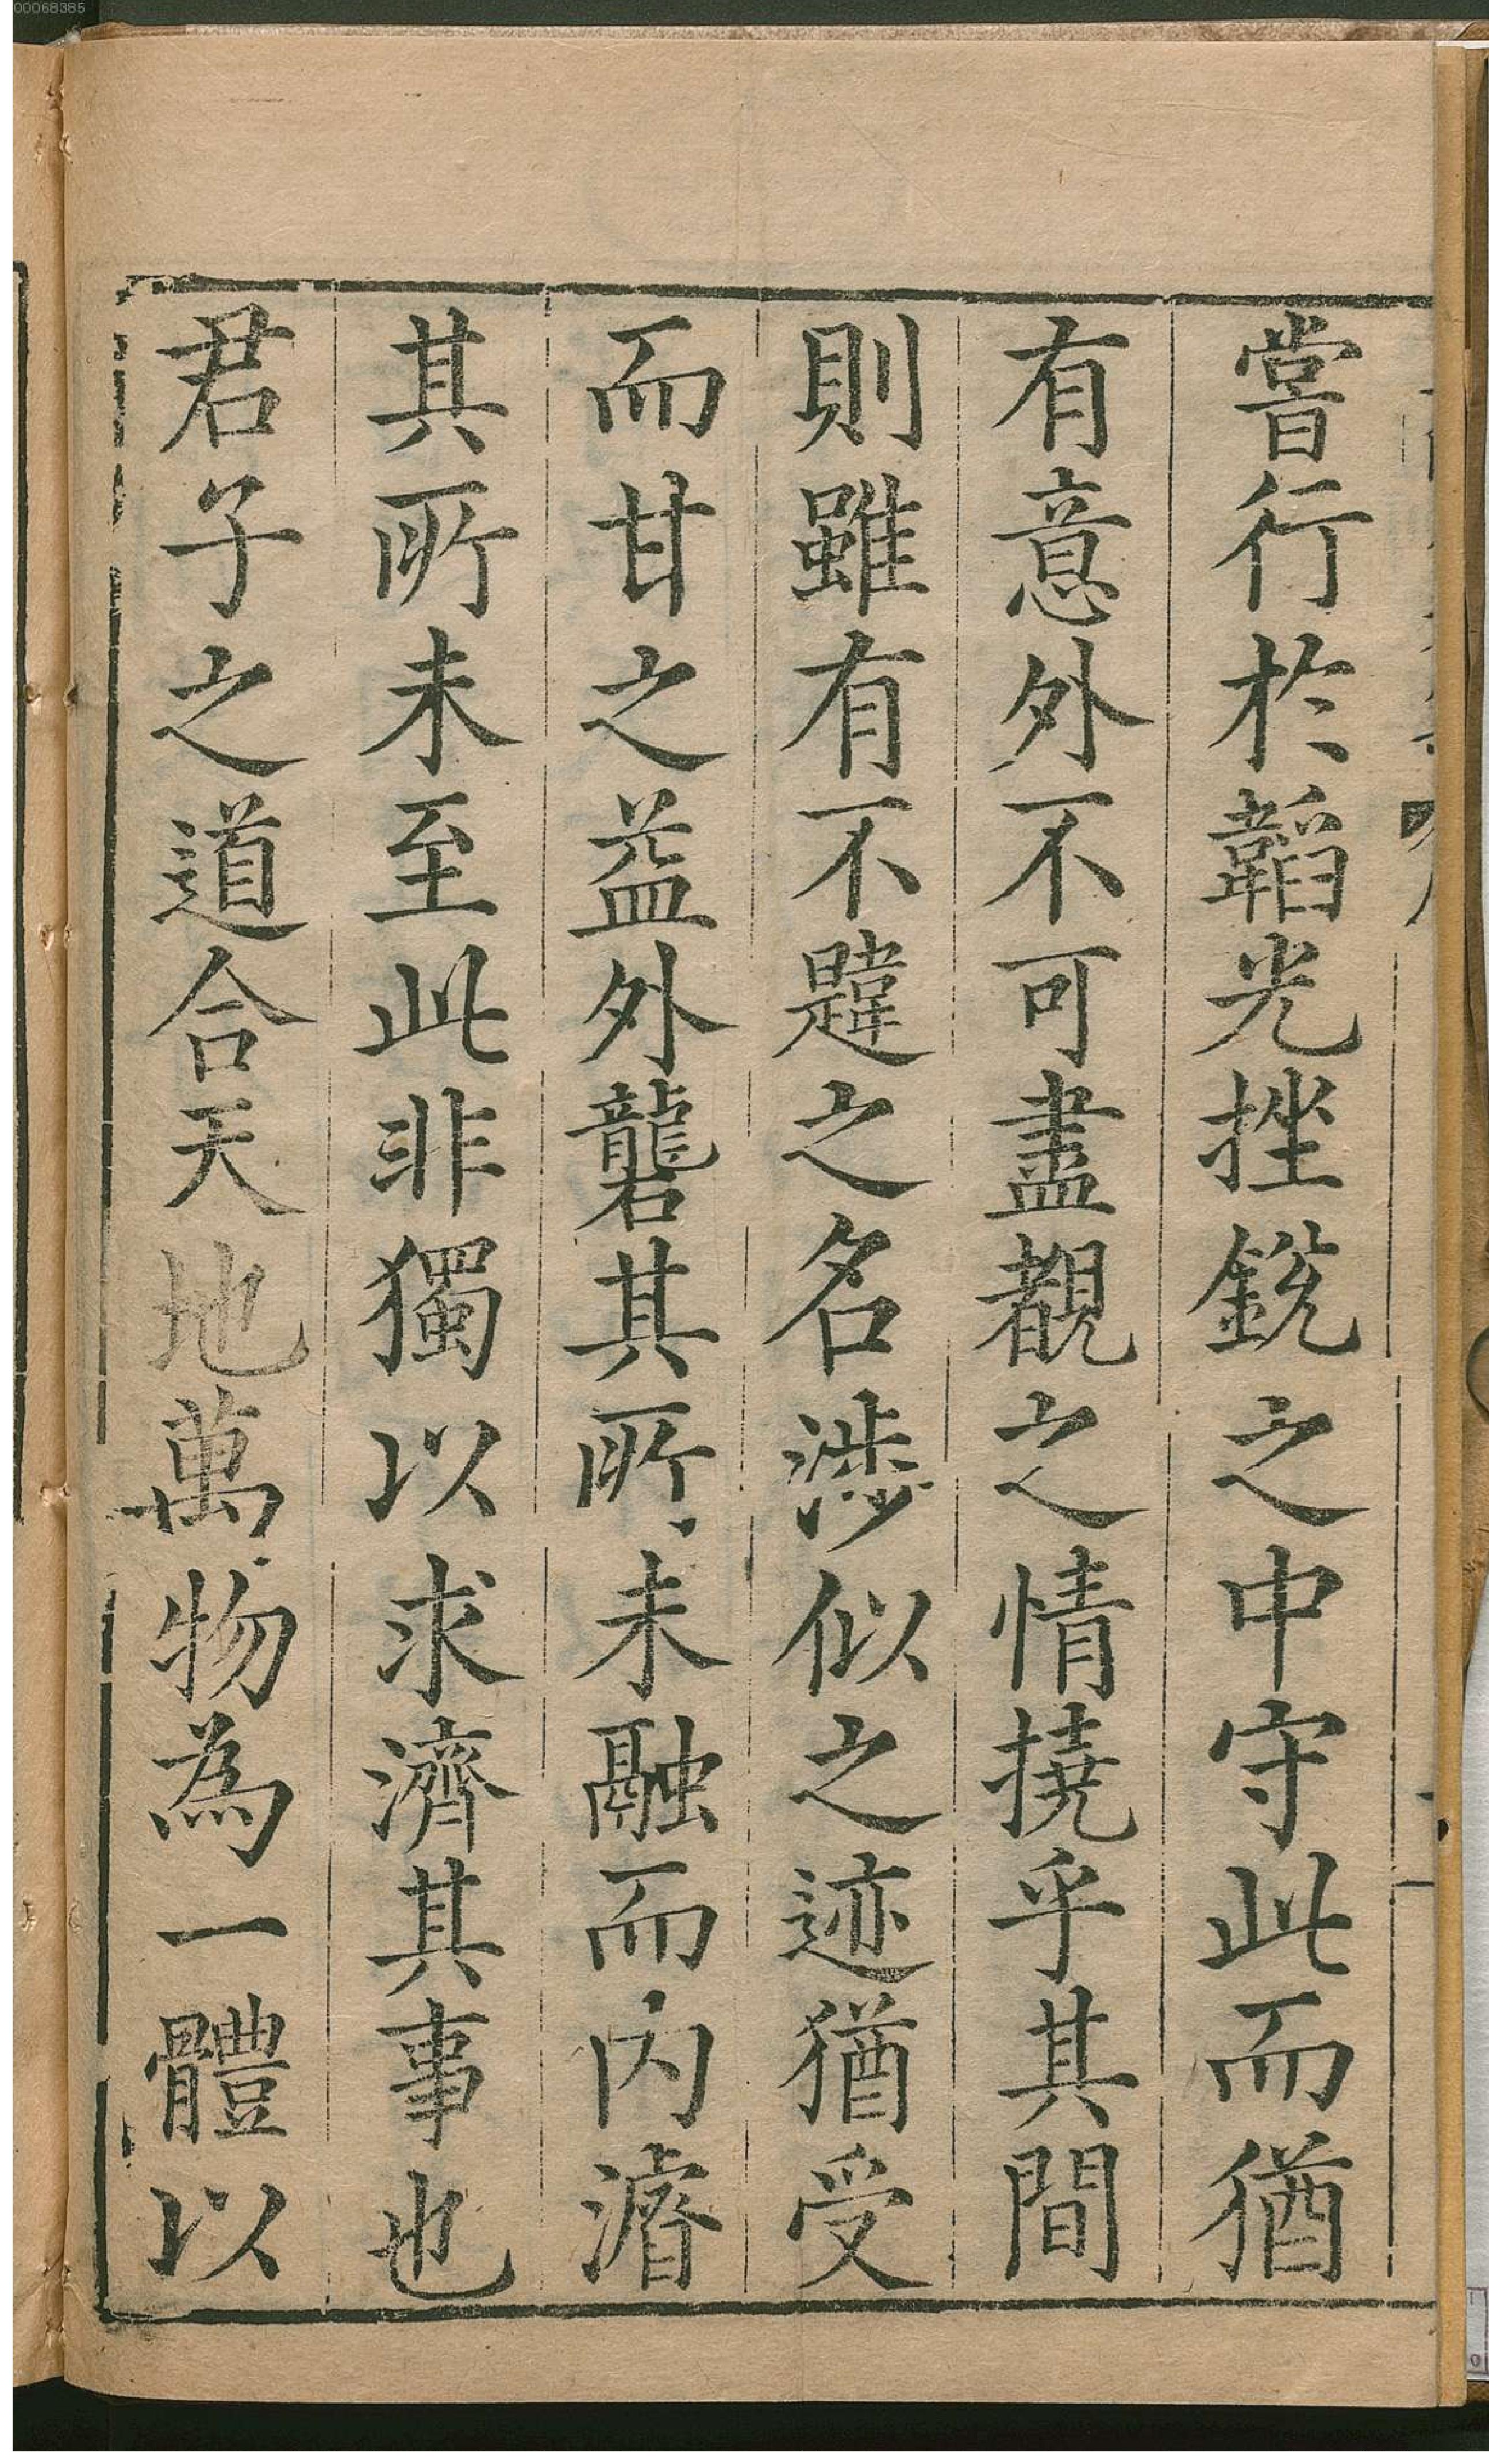 00068385
嘗行於韜光挫銳之中守此而猶
有意外不可盡覩之情撓乎其間
則雖有不韙之名涉似之迹猶受
而甘之益外礱其所未融而內濬
其所未至此非獨以求濟其事也
君子之道合天地萬物為一體以